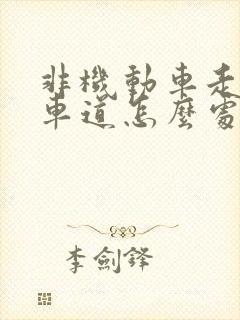 非機動車走
車道怎麼處
李劍鋒